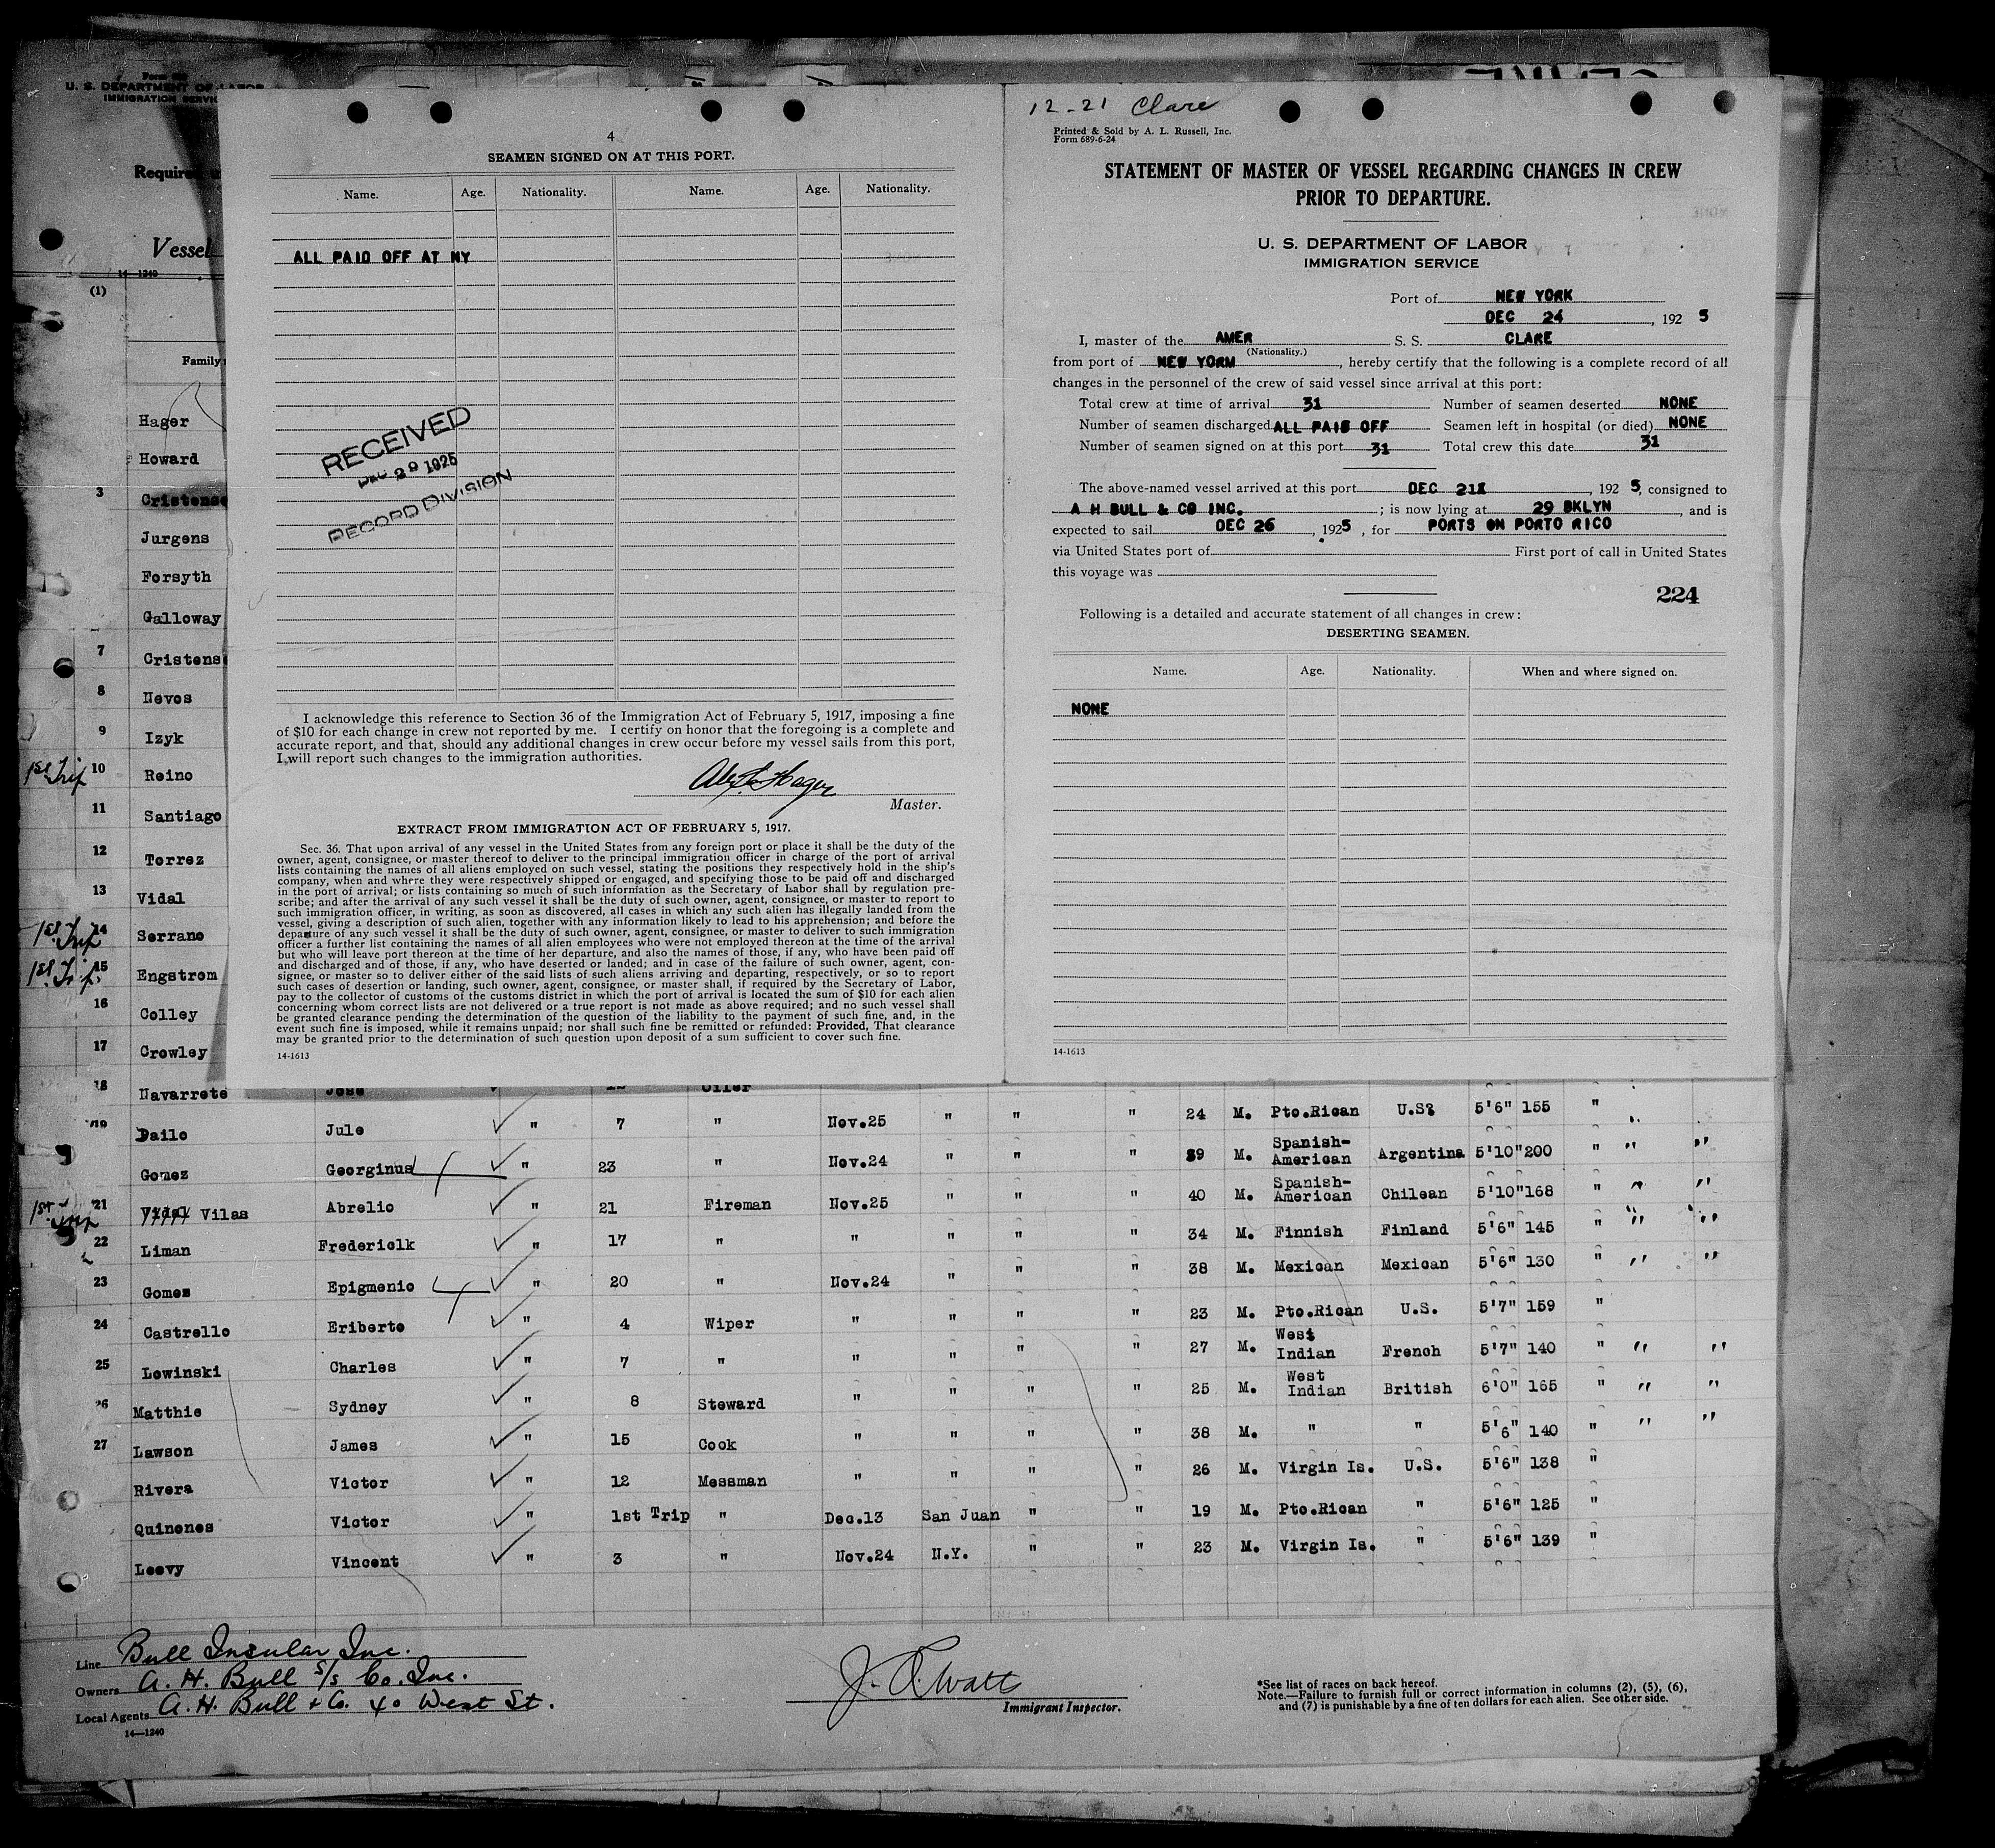 Form 689
U. S. DEPARTMENT OF LABOR
IMMIGRATION SERVICE
Required u
Vessel
14—1240
(1)
Family
Hager
Howard
3 Cristense
Jurgens
Forsyth
Galloway
7 Cristens
8 Nevos
9 Izyk
1st Trip 10 Reino
11 Santiago
12 Torrez
13 Vidal
1st Trip 14 Serrano
1st Trip 15 Engstrom
16 Colley
17 Crowley
4
SEAMEN SIGNED ON AT THIS PORT.
Name. Age. Nationality. Name. Age. Nationality.
ALL PAID OFF AT NY
RECEIVED
DEC 29 1925
RECORD DIVISION
I acknowledge this reference to Section 36 of the Immigration Act of February 5, 1917, imposing a fine
of $10 for each change in crew not reported by me. I certify on honor that the foregoing is a complete and
accurate report, and that, should any additional changes in crew occur before my vessel sails from this port,
I will report such changes to the immigration authorities.
Hager
Master.
EXTRACT FROM IMMIGRATION ACT OF FEBRUARY 5, 1917.
Sec. 36. That upon arrival of any vessel in the United States from any foreign port or place it shall be the duty of the
owner, agent, consignee, or master thereof to deliver to the principal immigration officer in charge of the port of arrival
lists containing the names of all aliens employed on such vessel, stating the positions they respectively hold in the ship's
company, when and where they were respectively shipped or engaged, and specifying those to be paid off and discharged
in the port of arrival; or lists containing so much of such information as the Secretary of Labor shall by regulation pre-
scribe; and after the arrival of any such vessel it shall be the duty of such owner, agent, consignee, or master to report to
such immigration officer, in writing, as soon as discovered, all cases in which any such alien has illegally landed from the
vessel, giving a description of such alien, together with any information likely to lead to his apprehension; and before the
departure of any such vessel it shall be the duty of such owner, agent, consignee, or master to deliver to such immigration
officer a further list containing the names of all alien employees who were not employed thereon at the time of the arrival
but who will leave port thereon at the time of her departure, and also the names of those, if any, who have been paid off
and discharged and of those, if any, who have deserted or landed; and in case of the failure of such owner, agent, con-
signee, or master so to deliver either of the said lists of such aliens arriving and departing, respectively, or so to report
such cases of desertion or landing, such owner, agent, consignee, or master shall, if required by the Secretary of Labor,
pay to the collector of customs of the customs district in which the port of arrival is located the sum of $10 for each alien
concerning whom correct lists are not delivered or a true report is not made as above required; and no such vessel shall
be granted clearance pending the determination of the question of the liability to the payment of such fine, and, in the
event such fine is imposed, while it remains unpaid; nor shall such fine be remitted or refunded: Provided, That clearance
may be granted prior to the determination of such question upon deposit of a sum sufficient to cover such fine.
14-1613
12-21 Clare
Printed & Sold by A. L. Russell, Inc.
Form 689-6-24
STATEMENT OF MASTER OF VESSEL REGARDING CHANGES IN CREW
PRIOR TO DEPARTURE.
U. S. DEPARTMENT OF LABOR
IMMIGRATION SERVICE
Port of NEW YORK
DEC 24, 1925
I, master of the AMER S. S. CLARE
(Nationality.)
from port of NEW YORM, hereby certify that the following is a complete record of all
changes in the personnel of the crew of said vessel since arrival at this port:
Total crew at time of arrival 31 Number of seamen deserted NONE
Number of seamen discharged ALL PAID OFF Seamen left in hospital (or died) NONE
Number of seamen signed on at this port 31 Total crew this date 31
The above-named vessel arrived at this port DEC 21X, 1925, consigned to
A H BULL & CO INC.; is now lying at 29 BKLYN, and is
expected to sail DEC 26, 1925, for PORTS ON PORTO RICO
via United States port of First port of call in United States
this voyage was
224
Following is a detailed and accurate statement of all changes in crew:
DESERTING SEAMEN.
Name. Age. Nationality. When and where signed on.
NONE
14-1613
18 Navarrete Jose Oiler
19 Dailo Jule " 7 " Nov.25 " " " 24 M. Pto.Rican U.S? 5'6" 155 "
Gomez Georginus " 23 " Nov.24 " " " 39 M. Spanish-American Argentina 5'10" 200 " " "
1st Trip 21 Vidal Vilas Abrelio " 21 Fireman Nov.25 " " " 40 M. Spanish-American Chilean 5'10" 168 " " "
22 Liman Fredericlk " 17 " " " " " 34 M. Finnish Finland 5'6" 145 " " "
23 Gomez Epigmenio " 20 " Nov.24 " " " 38 M. Mexican Mexican 5'6" 130 " " "
24 Castrello Eriberto " 4 Wiper " " " " 23 M. Pto.Rican U.S. 5'7" 159 "
25 Lowinski Charles " 7 " " " " " 27 M. West Indian French 5'7" 140 " " "
26 Matthie Sydney " 8 Steward " " " " 25 M. West Indian British 6'0" 165 " " "
27 Lawson James " 15 Cook " " " " 38 M. " " 5'6" 140 " " "
Rivera Victor " 12 Messman " " " " 26 M. Virgin Is. U.S. 5'6" 138 "
Quinones Victor " 1st Trip " Dec.13 San Juan " " 19 M. Pto.Rican " 5'6" 125 "
Leevy Vincent " 3 " Nov.24 N.Y. " " 23 M. Virgin Is. " 5'6" 139 "
Line Bull Insular Inc.
Owners A. H. Bull S/S Co. Inc.
Local Agents A. H. Bull & Co. 40 West St.
14—1240
J. A. Watt
Immigrant Inspector.
*See list of races on back hereof.
Note.—Failure to furnish full or correct information in columns (2), (5), (6),
and (7) is punishable by a fine of ten dollars for each alien. See other side.